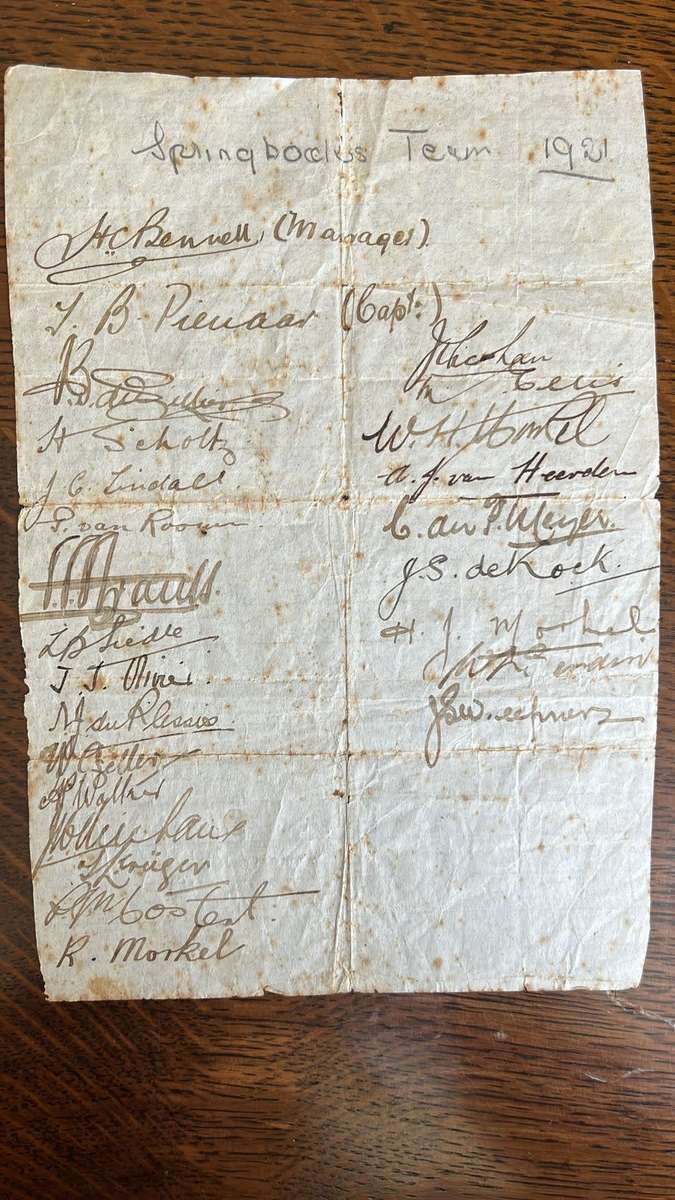 Springbocks Team 1921
H.C Bennett, (Manager)
T. B. Pienaar (Capt.)
H Scholtz
J C Tindall
T. van Rooyen
S. S. Strauss.
I B Siedle
J. J. Olivier
N du Plessis
W C Zeller
A P Walker
J S Weepener
T Kruger
Costen
R. Morkel
J P Michau
M Ellis
W. H. Morkel
A. J. van Heerden
C. du P. Meyer.
J. S. de Kock.
H. J. Morkel